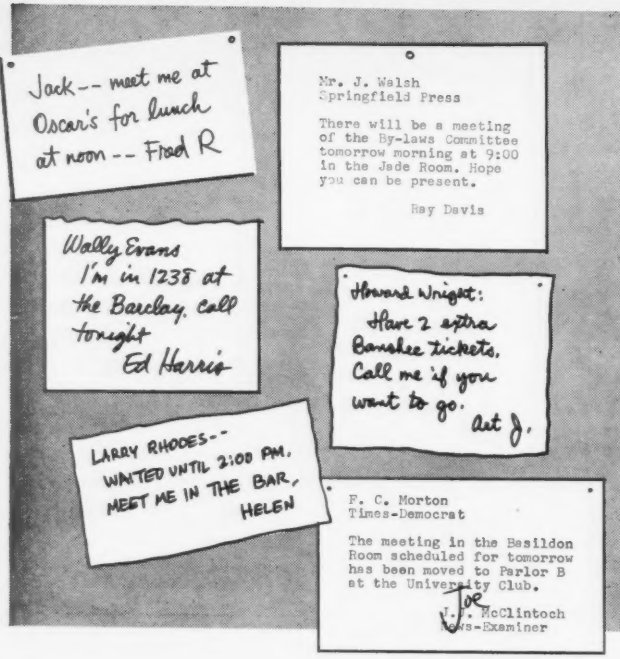 Jack-- meet me at
Oscar's for lunch
at noon -- Fred R
Mr. J. Walsh
Springfield Press
There will be a meeting
of the By-laws Committee
tomorrow morning at 9:00
in the Jade Room. Hope
you can be present.
Ray Davis
Wally Evans
I'm in 1238 at
the Barclay. call
tonight
Ed Harris
Howard Wright:
Have 2 extra
Banshee tickets.
Call me if you
want to go.
Art J.
LARRY RHODES--
WAITED UNTIL 2:00 PM.
MEET ME IN THE BAR,
HELEN
F. C. Morton
Times-Democrat
The meeting in the Basildon
Room scheduled for tomorrow
has been moved to Parlor B
at the University Club.
Joe
J.J. McClintoch
News-Examiner